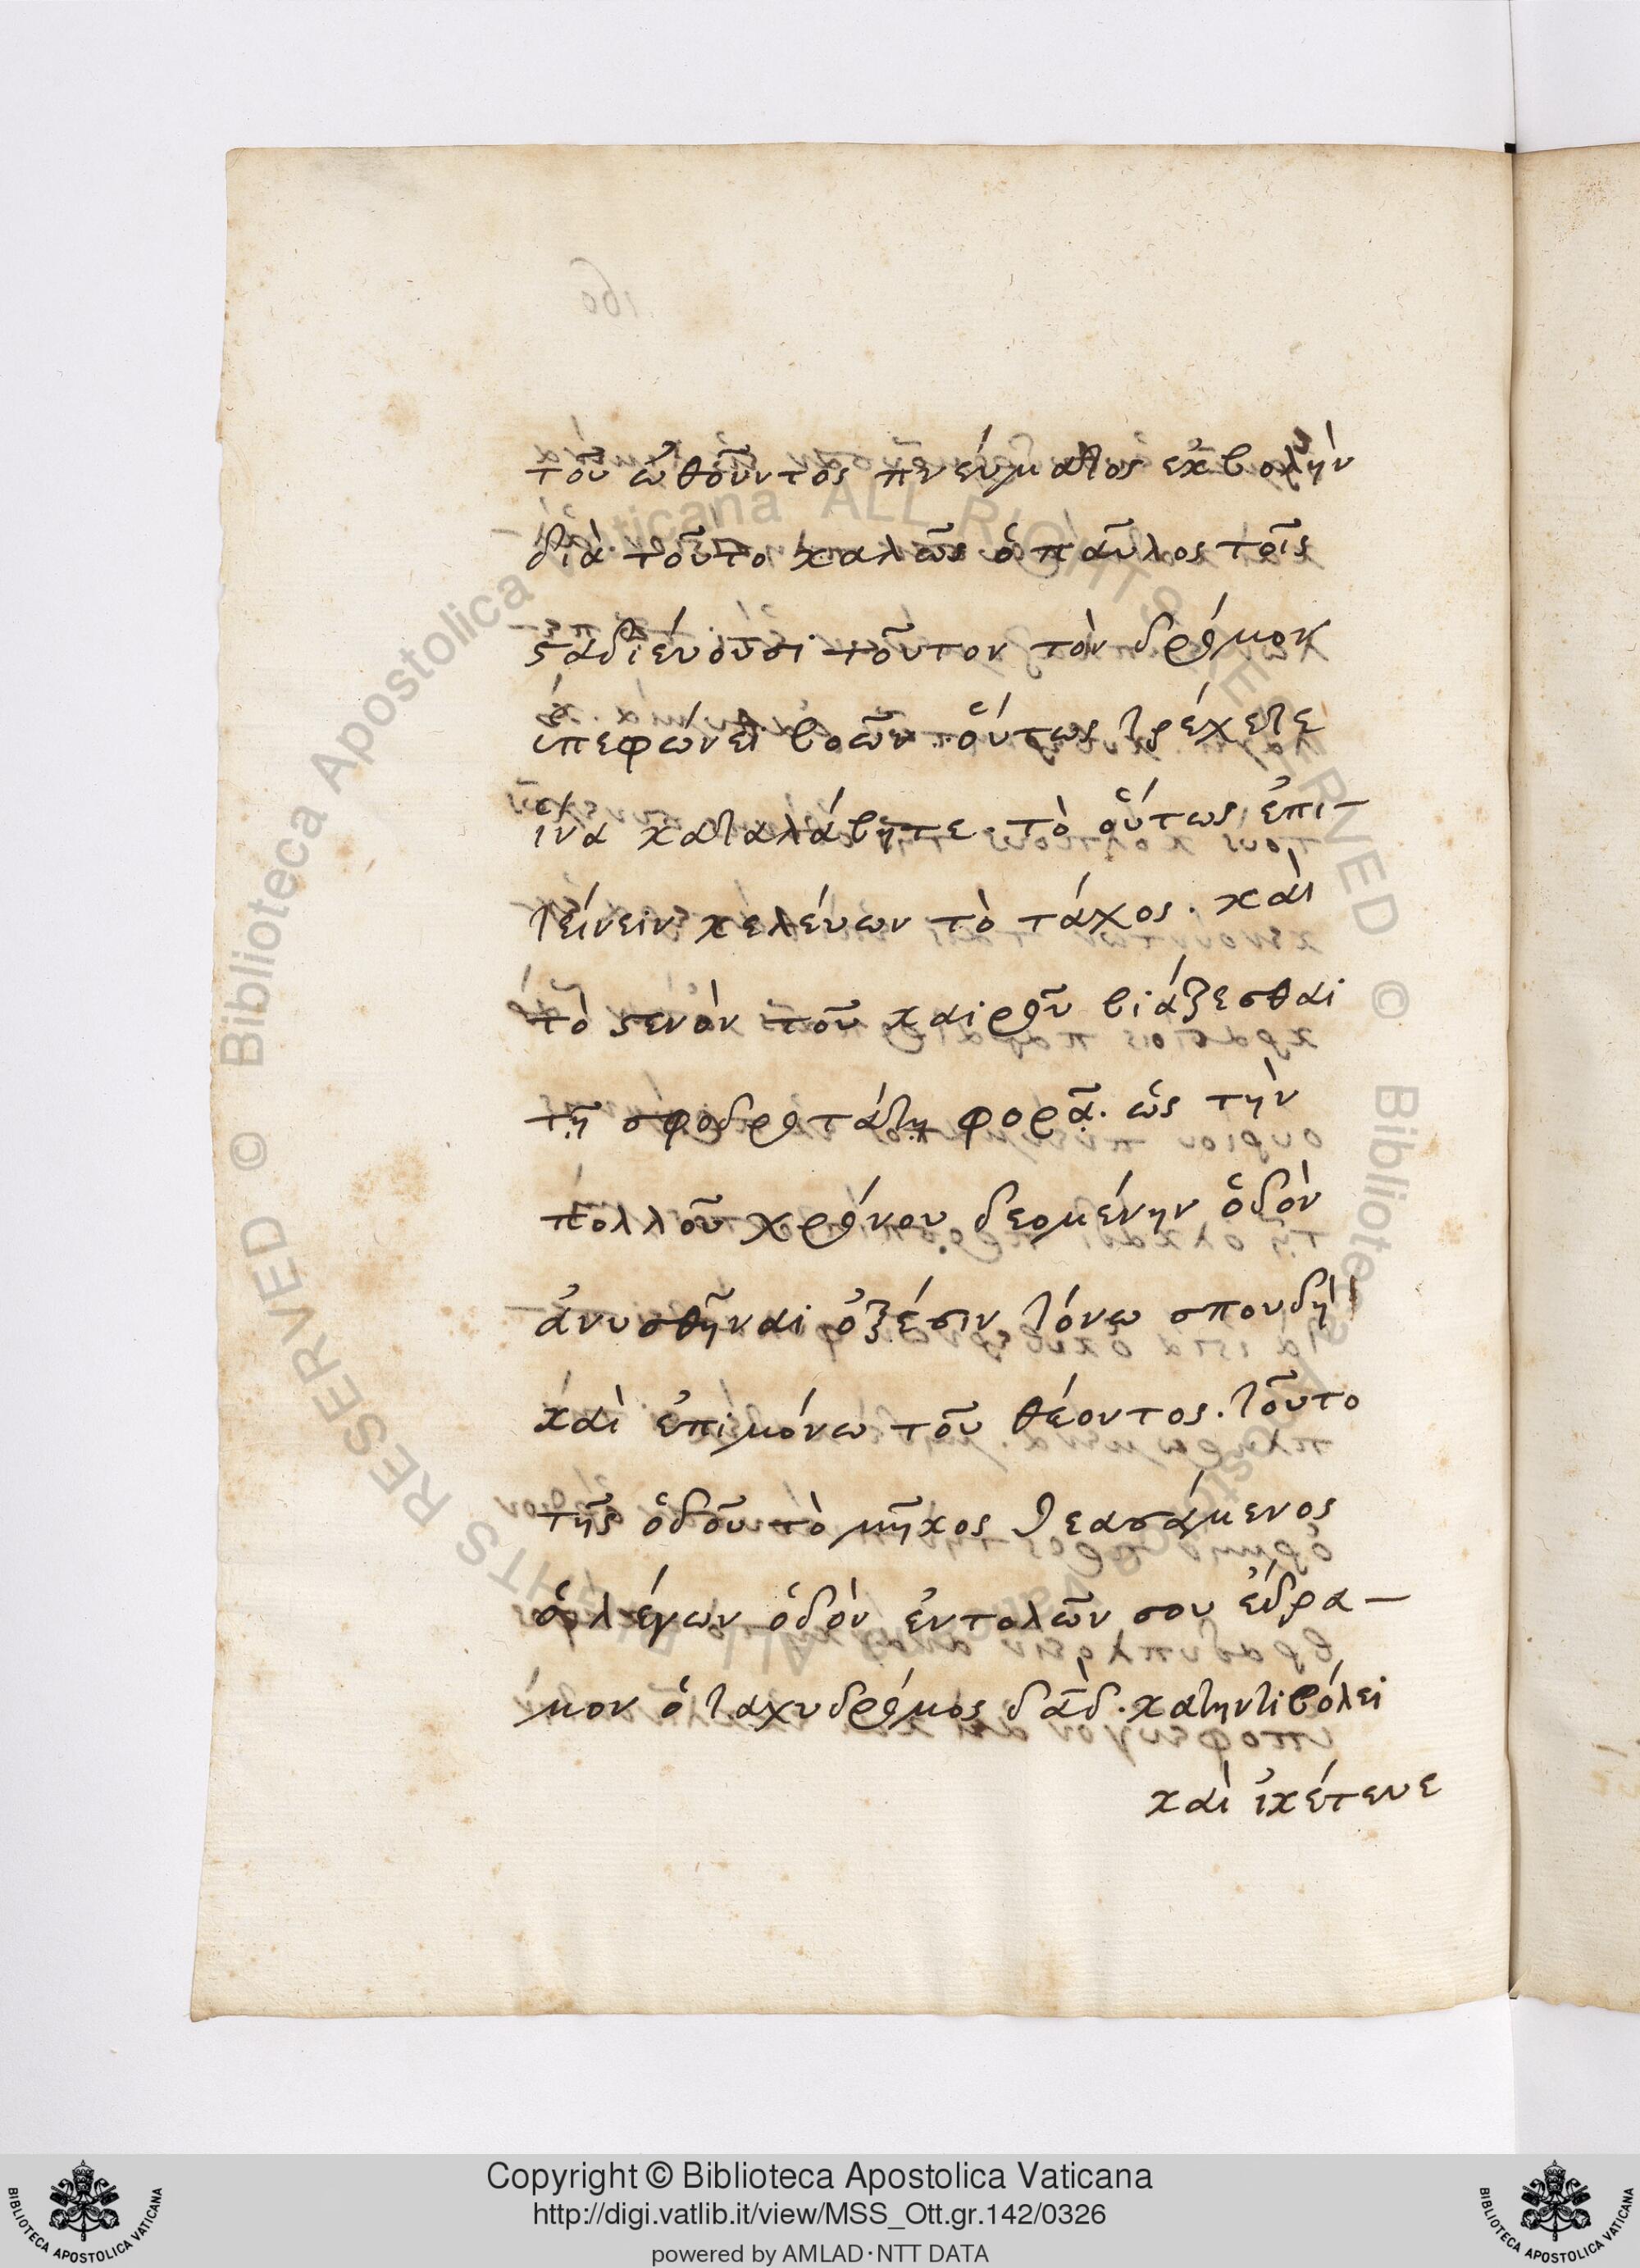 τοῦ ὠθοῦντος πνεύματος ἐκβολὴν
διὰ τοῦτο καλῶς ὁ παῦλος τοῖς
ϛαδιέυουσι τοῦτον τὸν δρόμον
ἐπεφώνει βοῶν· οὕτως τρέχετε
ἵνα καταλάβητε· τὸ οὕτως ἐπι-
τείνειν κελέυων τὸ τάχος· καὶ
τὸ ϛενὸν τοῦ καιροῦ βιάζεσθαι
τῇ σφοδροτάτῃ φορᾷ· ὡς τὴν
πολλοῦ χρόνου δεομένην ὁδὸν
ἀνυσθῆναι ὀξέσιν τόνω σπουδῆι
καὶ ἐπιμόνω τοῦ θέοντος· τοῦτο
τῆς ὁδοῦ τὸ μῆκος θεασάμενος
ὁ λέγων ὁδὸν ἐντολῶν σου ἔδρα-
μον ὁ ταχυδρόμος δᾱδ· κατηντιβόλει
καὶ ἰκέτευε
160
© Biblioteca Apostolica Vaticana ALL RIGHTS RESERVED © Biblioteca Apostolica Vaticana ALL RIGHTS RESERVED
BIBLIOTECA APOSTOLICA VATICANA
Copyright © Biblioteca Apostolica Vaticana
http://digi.vatlib.it/view/MSS_Ott.gr.142/0326
powered by AMLAD·NTT DATA
BIBLIOTECA APOSTOLICA VATICANA